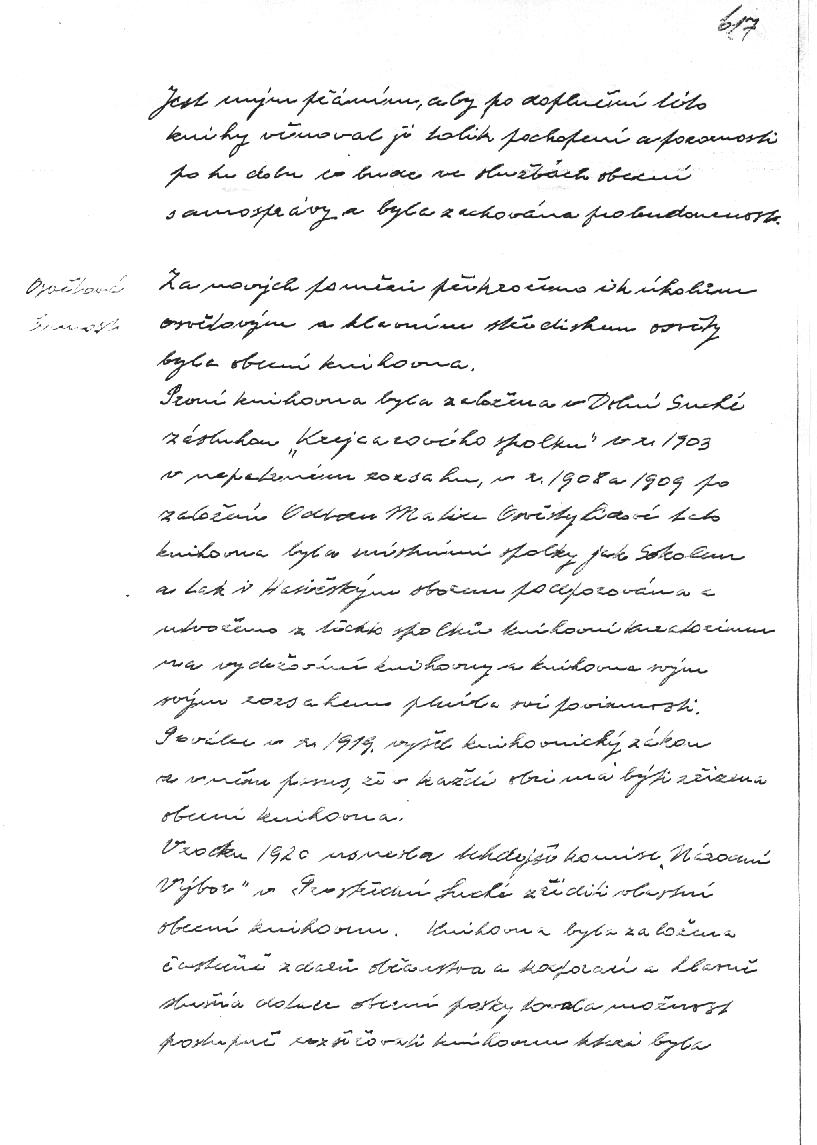 617
Jest mým přáním, aby po doplnění této
knihy věnoval jí tolik pochopení a pozornosti
po tu dobu co bude ve službách obecní
samosprávy a byla zachována pro budoucnost.
Osvětová
činnost
Za nových poměrů přikročeno i k úkolům
osvětovým a hlavním střediskem osvěty
byla obecní knihovna.
První knihovna byla založena v Dolní Suché
zásluhou „Krejcarového spolku" v r. 1903
v nepatrném rozsahu, v r. 1908 a 1909 po
založení Odboru Matice Osvěty Lidové tato
knihovna byla místními spolky jak Sokolem
a tak i Hasičským sborem podporována a
utvořeno z těchto spolků knihovní kuratorium
na vydržování knihovny a knihovna svým
svým rozsahem plnila své povinnosti.
Po válce v r. 1919. vyšel knihovnický zákon
a v něm pravs, že v každé obci má býti zřízena
obecní knihovna.
V roku 1920 usnesla tehdejší komise „Národní
Výbor" v Prostřední Suché zříditi vlastní
obecní knihovnu. Knihovna byla založena
částečně z darů občanstva a korporací a hlavně
slušná dotace obecní poskytovala možnost
postupně rozšiřovati knihovnu která byla